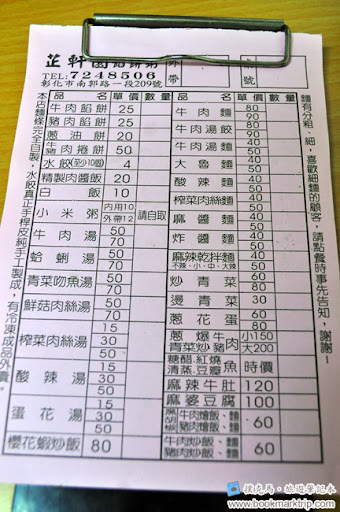 芷軒
TEL:7248506
彰化市南郭路一段209號
外帶
號
品名 單價 數量
牛肉餡餅 25
豬肉餡餅 25
蔥油餅 20
牛肉捲餅 50
水餃(至少10個) 4
精製肉醬飯 20
白飯 10
小米粥 內用10 外帶12 請自取
牛肉湯 50 70
蛤蜊湯 50 70
青菜吻魚湯 50 70
鮮菇肉絲湯 50 70
榨菜肉絲湯 15 30
酸辣湯 15 30 50
蛋花湯 15 30 50
櫻花蝦炒飯 80
品名 單價 數量
牛肉麵 80 90
牛肉湯餃 80 90
大魯麵 40 50
酸辣麵 40 50
榨菜肉絲麵 40 50
麻醬麵 40 50
炸醬麵 40 50
麻辣乾拌麵 40
不辣、小、中、大辣 50
炒青菜 60
燙青菜 30
蔥花蛋 60
蔥爆牛肉 小150
青菜炒豬肉 大200
糖醋.紅燒
清蒸.豆瓣 魚 時價
麻辣牛肚 120
麻婆豆腐 100
黑胡椒 牛肉燴飯、麵
豬肉燴飯、麵 60
牛肉炒飯、麵
豬肉炒飯、麵 60
本店麵條完全自製，水餃真正手桿皮純手工製成，有冷凍成品外賣。
麵有分粗、細，喜歡細麵的顧客，請點餐時事先告知，謝謝！
撲克馬．旅遊筆記本
www.bookmarktrip.com